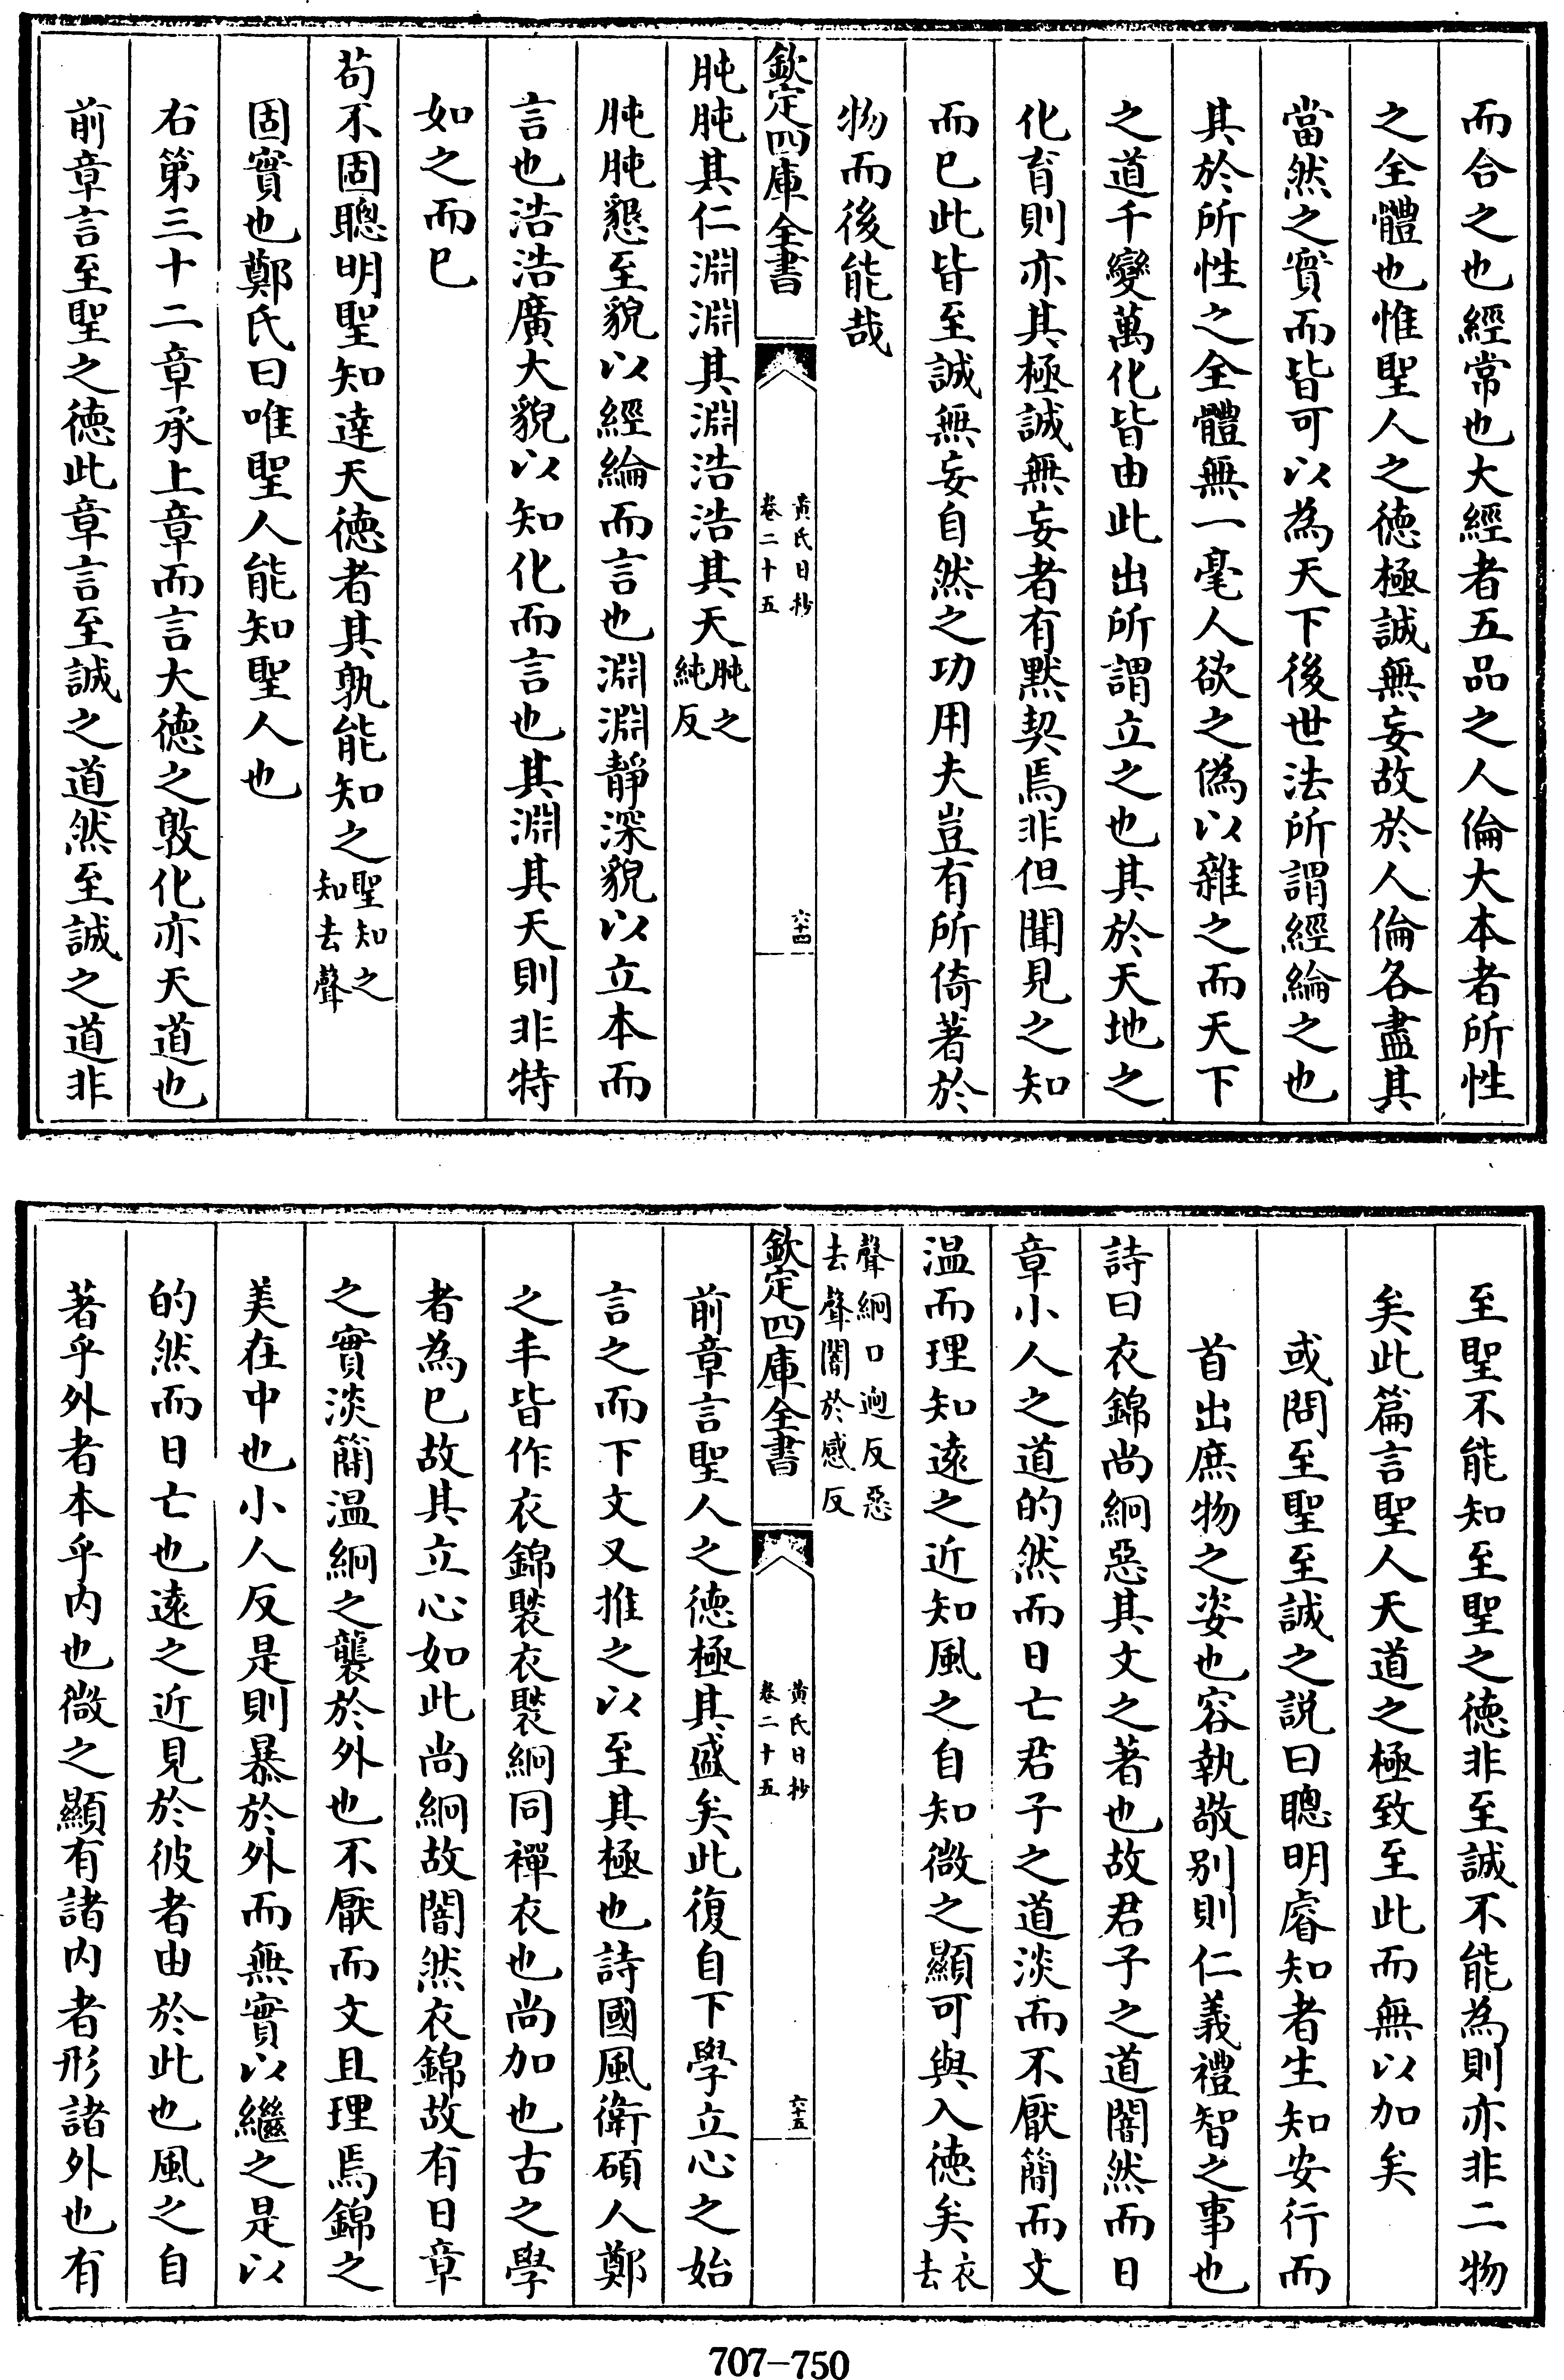 而合之也經常也大經者五品之人倫大本者所性
之全體也惟聖人之德極誠無妄故於人倫各盡其
當然之實而皆可以為天下後世法所謂經綸之也
其於所性之全體無一毫人欲之偽以雜之而天下
之道千變萬化皆由此出所謂立之也其於天地之
化育則亦其極誠無妄者有默契焉非但聞見之知
而已此皆至誠無妄自然之功用夫豈有所倚著於
物而後能哉
欽定四庫全書
黃氏日抄
卷二十五
六十四
肫肫其仁淵淵其淵浩浩其天肫之純反
肫肫懇至貌以經綸而言也淵淵靜深貌以立本而
言也浩浩廣大貌以知化而言也其淵其天則非特
如之而已
苟不固聰明聖知達天德者其孰能知之聖知之知去聲
固實也鄭氏曰唯聖人能知聖人也
右第三十二章承上章而言大德之敦化亦天道也
前章言至聖之德此章言至誠之道然至誠之道非
至聖不能知至聖之德非至誠不能為則亦非二物
矣此篇言聖人天道之極致至此而無以加矣
或問至聖至誠之説曰聰明睿知者生知安行而
首出庶物之姿也容執敬别則仁義禮智之事也
詩曰衣錦尚絅惡其文之著也故君子之道闇然而日
章小人之道的然而日亡君子之道淡而不厭簡而文
温而理知遠之近知風之自知微之顯可與入德矣衣去
聲絅口迥反惡去聲闇於感反
欽定四庫全書
黃氏日抄
卷二十五
六十五
前章言聖人之德極其盛矣此復自下學立心之始
言之而下文又推之以至其極也詩國風衛碩人鄭
之丰皆作衣錦褧衣褧絅同禪衣也尚加也古之學
者為已故其立心如此尚絅故闇然衣錦故有日章
之實淡簡温絅之襲於外也不厭而文且理焉錦之
美在中也小人反是則暴於外而無實以繼之是以
的然而日亡也遠之近見於彼者由於此也風之自
著乎外者本乎内也微之顯有諸内者形諸外也有
707-750